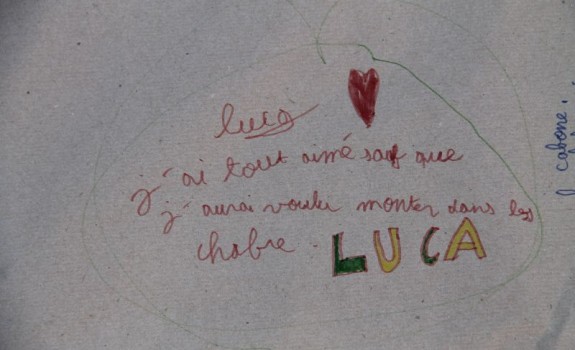 luca
j'ai tout aimé sauf que
j'aurai voulu monter dans les
chabre. LUCA
cabane.